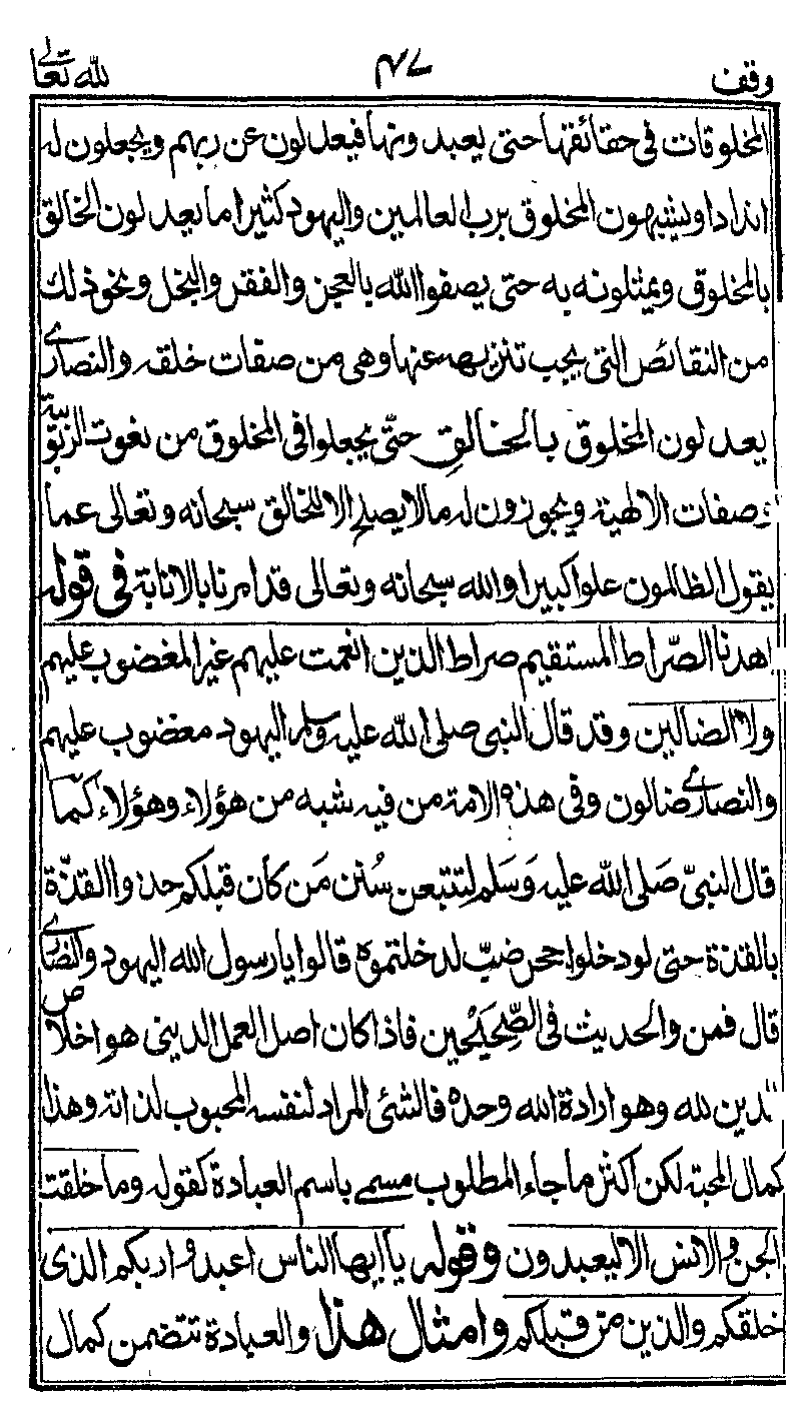 وقف ٤٧ لله تعالى
المخلوقات فى حقائقها حتى يعبد ونها فيعدلون عن ربهم ويجعلون له
اندادا ويشبهون المخلوق برب العالمين واليهود كثيرا ما يعدلون الخالق
بالمخلوق ويمثلونه به حتى يصفوا الله بالعجز والفقر والبخل ونحو ذلك
من النقائص التى يجب تنزيهه عنها وهى من صفات خلقه والنصارى
يعدلون المخلوق بالخالق حتّى يجعلوا فى المخلوق من نعوت الربوبية
وصفات الالهية ويجوزون له ما لا يصلح الا للخالق سبحانه وتعالى عما
يقول الظالمون علوا كبيرا والله سبحانه وتعالى قد امرنا بالانابة فى قوله
اهدنا الصّراط المستقيم صراط الذين انعمت عليهم غير المغضوب عليهم
ولا الضالين وقد قال النبى صلى الله عليه وسلم اليهود مغضوب عليهم
والنصارى ضالون وفى هذه الامة من فيه شبه من هؤلاء وهؤلاء كما
قال النبىّ صَلى الله عليه وَسَلم لتتبعن سُنن مَن كان قبلكم حذوا القذّة
بالقذة حتى لو دخلوا جحر ضبّ لدخلتموه قالوا يا رسول الله اليهود والنصارى
قال فمن والحديث فى الصِّحيحَيْن فاذا كان اصل العمل الدينى هو اخلاص
الدين لله وهو ارادة الله وحده فالشئ المراد لنفسه المحبوب لذاته وهذا
كمال المحبة لكن اكثر ما جاء المطلوب مسمى باسم العبادة كقوله وما خلقت
الجن والانس الا ليعبدون وقوله يا ايها الناس اعبدوا ربكم الذى
خلقكم والذين من قبلكم وامثال هذا والعبادة تتضمن كمال